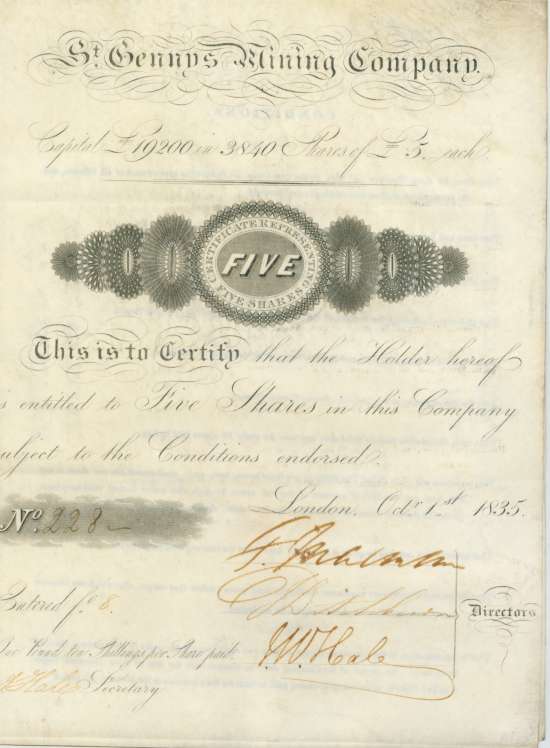 St. Gennys Mining Company.
Capital £19200 in 3840 Shares of £5. each.
CERTIFICATE REPRESENTING
FIVE
FIVE SHARES
This is to Certify that the Holder hereof
is entitled to Five Shares in this Company
subject to the Conditions endorsed.
London, Octr. 1st. 1835.
No. 228
Entered fo. 8.
Directors
ten Shillings per Share paid.
J.W. Hale
Hale Secretary